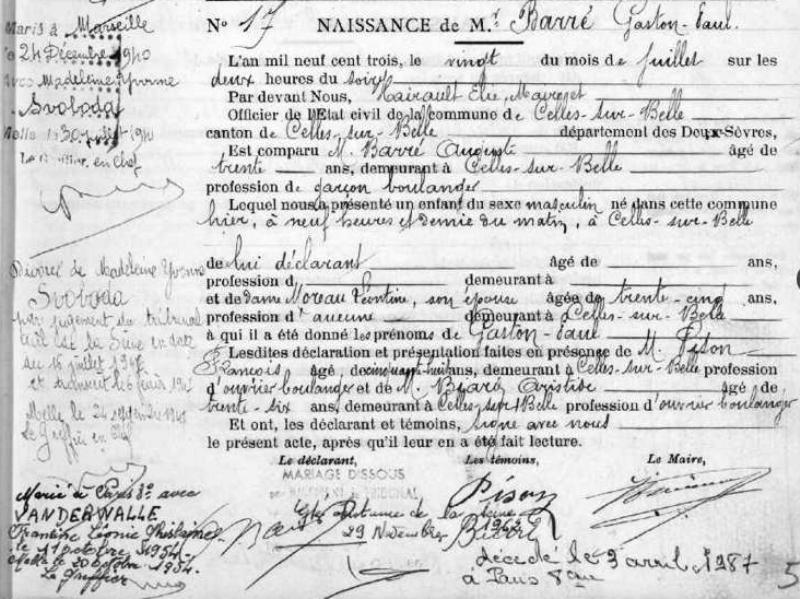 Marié à Marseille
le 24 Décembre 1940
avec Madeleine Yvonne
Svoboda
Melle le 30 juillet 1941
Le Greffier en chef
Divorcé de Madeleine Yvonne
Svoboda
par jugement du tribunal
civil de la Seine en date
du 16 juillet 194
et transcrit le 6 février 194
Melle le 24 septembre 194
Le Greffier en Chef
Marié à Paris 8e avec
VANDERWALLE
Francine Léonie Ghislaine
le 11 octobre 1954.
Melle le 20 octobre 1954.
Le Greffier
N° 17 NAISSANCE de M.r Barré Gaston-Paul.
L'an mil neuf cent trois, le vingt du mois de juillet sur les
deux heures du soir
Par devant Nous, Hairault Elie, Maire et
Officier de l'Etat civil de la commune de Celles-sur-Belle
canton de Celles-sur-Belle département des Deux-Sèvres,
Est comparu M. Barré Auguste âgé de
trente ans, demeurant à Celles-sur-Belle
profession de garçon boulanger
Lequel nous a présenté un enfant du sexe masculin né dans cette commune
hier, à neuf heures et demie du matin, à Celles-sur-Belle
de lui déclarant âgé de ans,
profession d demeurant à
et de dame Moreau Léontine, son épouse âgée de trente-cinq ans,
profession d'aucune demeurant à Celles-sur-Belle
à qui il a été donné les prénoms de Gaston-Paul
Lesdites déclaration et présentation faites en présence de M. Pison
François âgé de cinquante-huit ans, demeurant à Celles-sur-Belle profession
d'ouvrier boulanger et de M. Aristide âgé de
trente-six ans, demeurant à Celles-sur-Belle profession d'ouvrier boulanger
Et ont, les déclarant et témoins, signé avec nous
le présent acte, après qu'il leur en a été fait lecture.
Le déclarant, Les témoins, Le Maire,
MARIAGE DISSOUS
TRIBUNAL
Gde Instance de la Seine
29 Novembre 1962
Pison
décédé le 3 avril 1987
à Paris 8
5